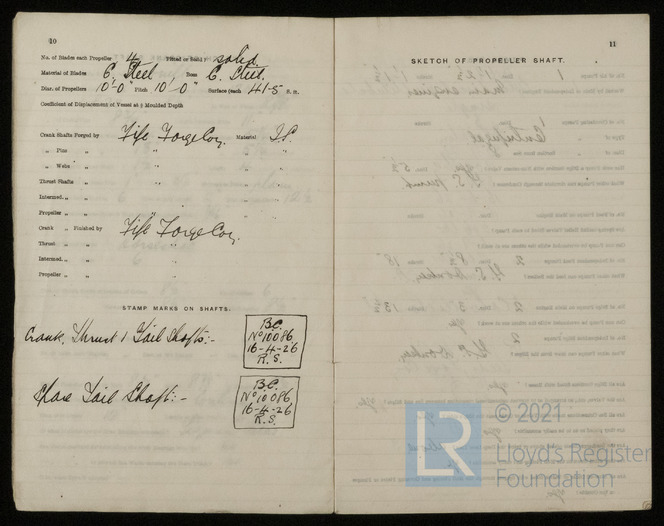 10
No. of Blades each Propeller 4 Fitted or Solid? solid.
Material of Blades C. Steel Boss C. Steel.
Diar. of Propellers 10'-0" Pitch 10'-0" Surface (each 41-5 S. ft.
Coefficient of Displacement of Vessel at ¾ Moulded Depth
Crank Shafts Forged by Fife Forge Coy. Material I.S.
„ Pins „ „
„ Webs „ „
Thrust Shafts „ „
Intermed. „ „ „
Propeller „ „ „
Crank „ Finished by Fife Forge Coy.
Thrust „ „ „
Intermed. „ „ „
Propeller „ „ „
STAMP MARKS ON SHAFTS.
Crank, Thrust & Tail Shafts:-
B.C.
No 10086
16-4-26
R.S.
Spare Tail Shaft:-
B.C.
No 10086
16-4-26
R.S.
11
SKETCH OF PROPELLER SHAFT.
© 2021
LR
Lloyd's Register
Foundation